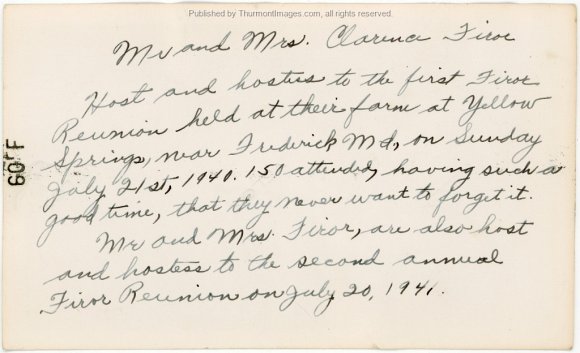 Published by ThurmontImages.com, all rights reserved.
Mr and Mrs. Clarence Firor
Host and hostess to the first Firor
Reunion held at their farm at Yellow
Springs, near Frederick Md, on Sunday
July 21st, 1940. 150 attended, having such a
good time, that they never want to forget it.
Mr and Mrs. Firor, are also host
and hostess to the second annual
Firor Reunion on July 20, 1941.